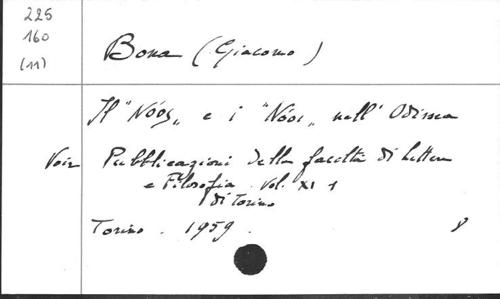 225
160
(11)
Bona (Giacomo)
Il "Nóos„ e i "Nóoi„ nell' Odissea
Voir Pubblicazioni della facoltà di Lettere
e Filosofia. Vol. XI 1
di Torino
Torino. 1959.
8